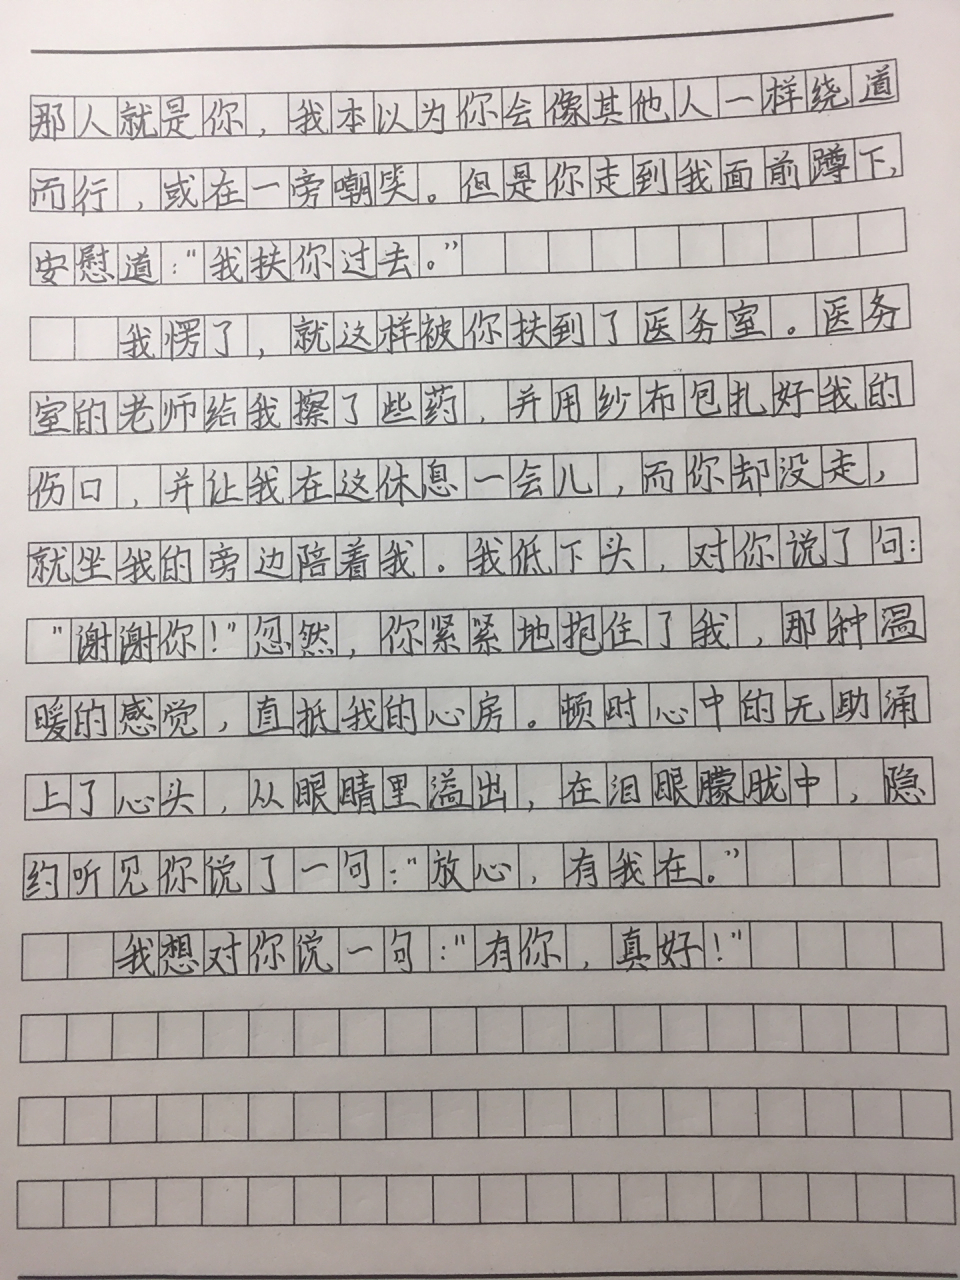 那人就是你，我本以为你会像其他人一样绕道
而行，或在一旁嘲笑。但是你走到我面前蹲下，
安慰道：“我扶你过去。”
我愣了，就这样被你扶到了医务室。医务
室的老师给我擦了些药，并用纱布包扎好我的
伤口，并让我在这休息一会儿，而你却没走，
就坐我的旁边陪着我。我低下头，对你说了句：
“谢谢你！”忽然，你紧紧地抱住了我，那种温
暖的感觉，直抵我的心房。顿时心中的无助涌
上了心头，从眼睛里溢出，在泪眼朦胧中，隐
约听见你说了一句：“放心，有我在。”
我想对你说一句：“有你，真好！”